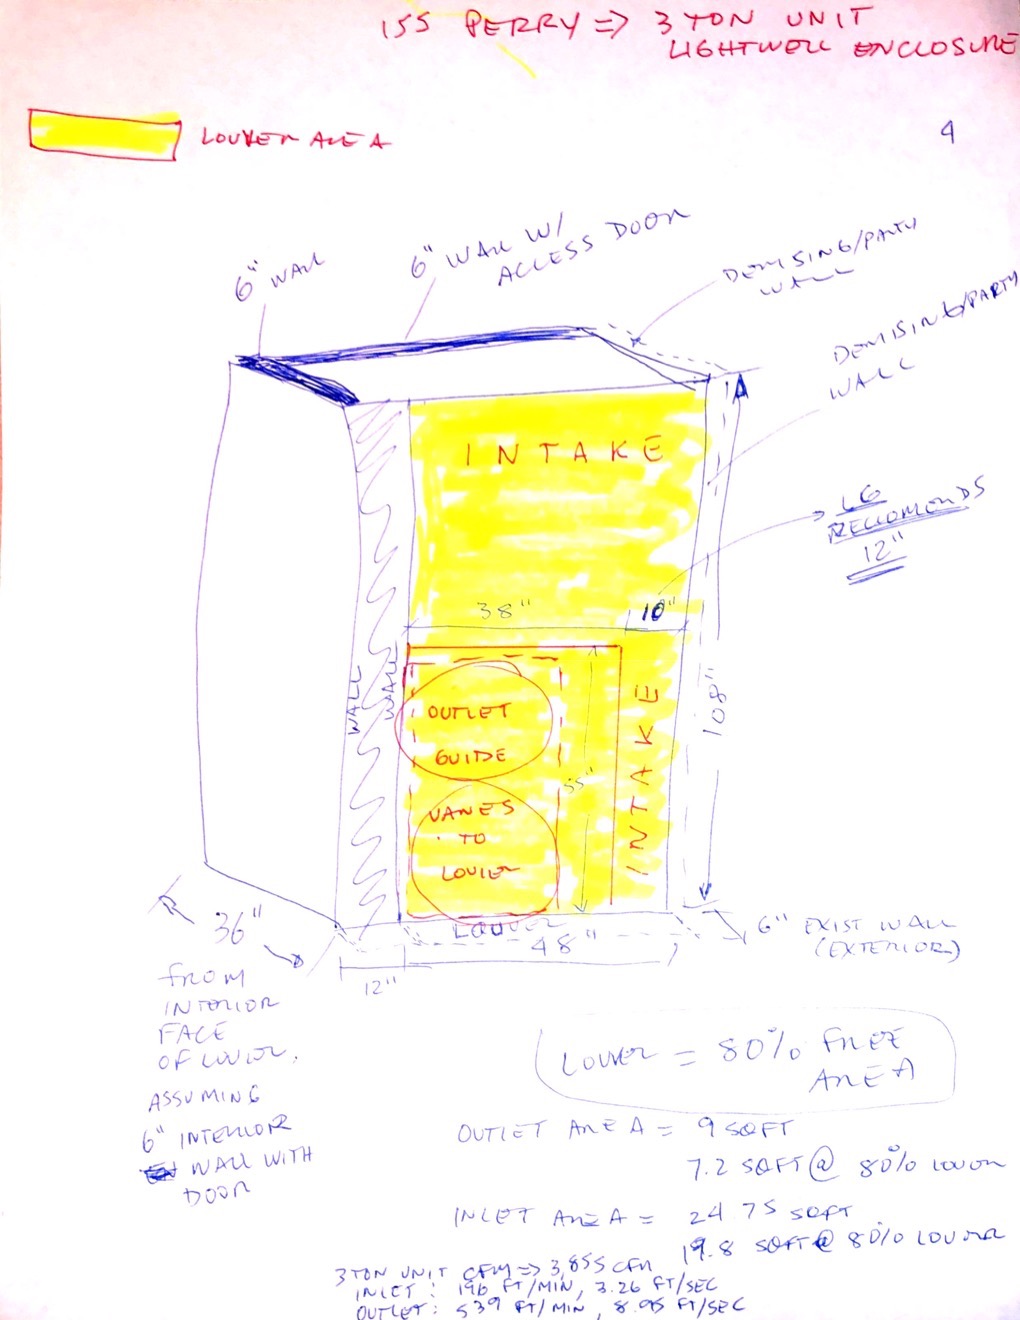 155 PERRY => 3 TON UNIT
LIGHTWELL ENCLOSURE
LOUVER AREA
4
6" WALL
6" WALL W/
ACCESS DOOR
DEMISING/PARTY
WALL
DEMISING/PARTY
WALL
INTAKE
LG
RECCOMENDS
12"
38"
10"
WALL
WALL
OUTLET
GUIDE
VANES
TO
LOUVER
55"
INTAKE
108"
LOUVER
48"
12"
36"
6" EXIST WALL
(EXTERIOR)
FROM
INTERIOR
FACE
OF LOUVER.
ASSUMING
6" INTERIOR
WALL WITH
DOOR
LOUVER = 80% FREE
AREA
OUTLET AREA = 9 SQFT
7.2 SQFT @ 80% LOUVER
INLET AREA = 24.75 SQFT
19.8 SQFT @ 80% LOUVER
3 TON UNIT CFM => 3,855 CFM
INLET: 196 FT/MIN, 3.26 FT/SEC
OUTLET: 539 FT/MIN, 8.95 FT/SEC